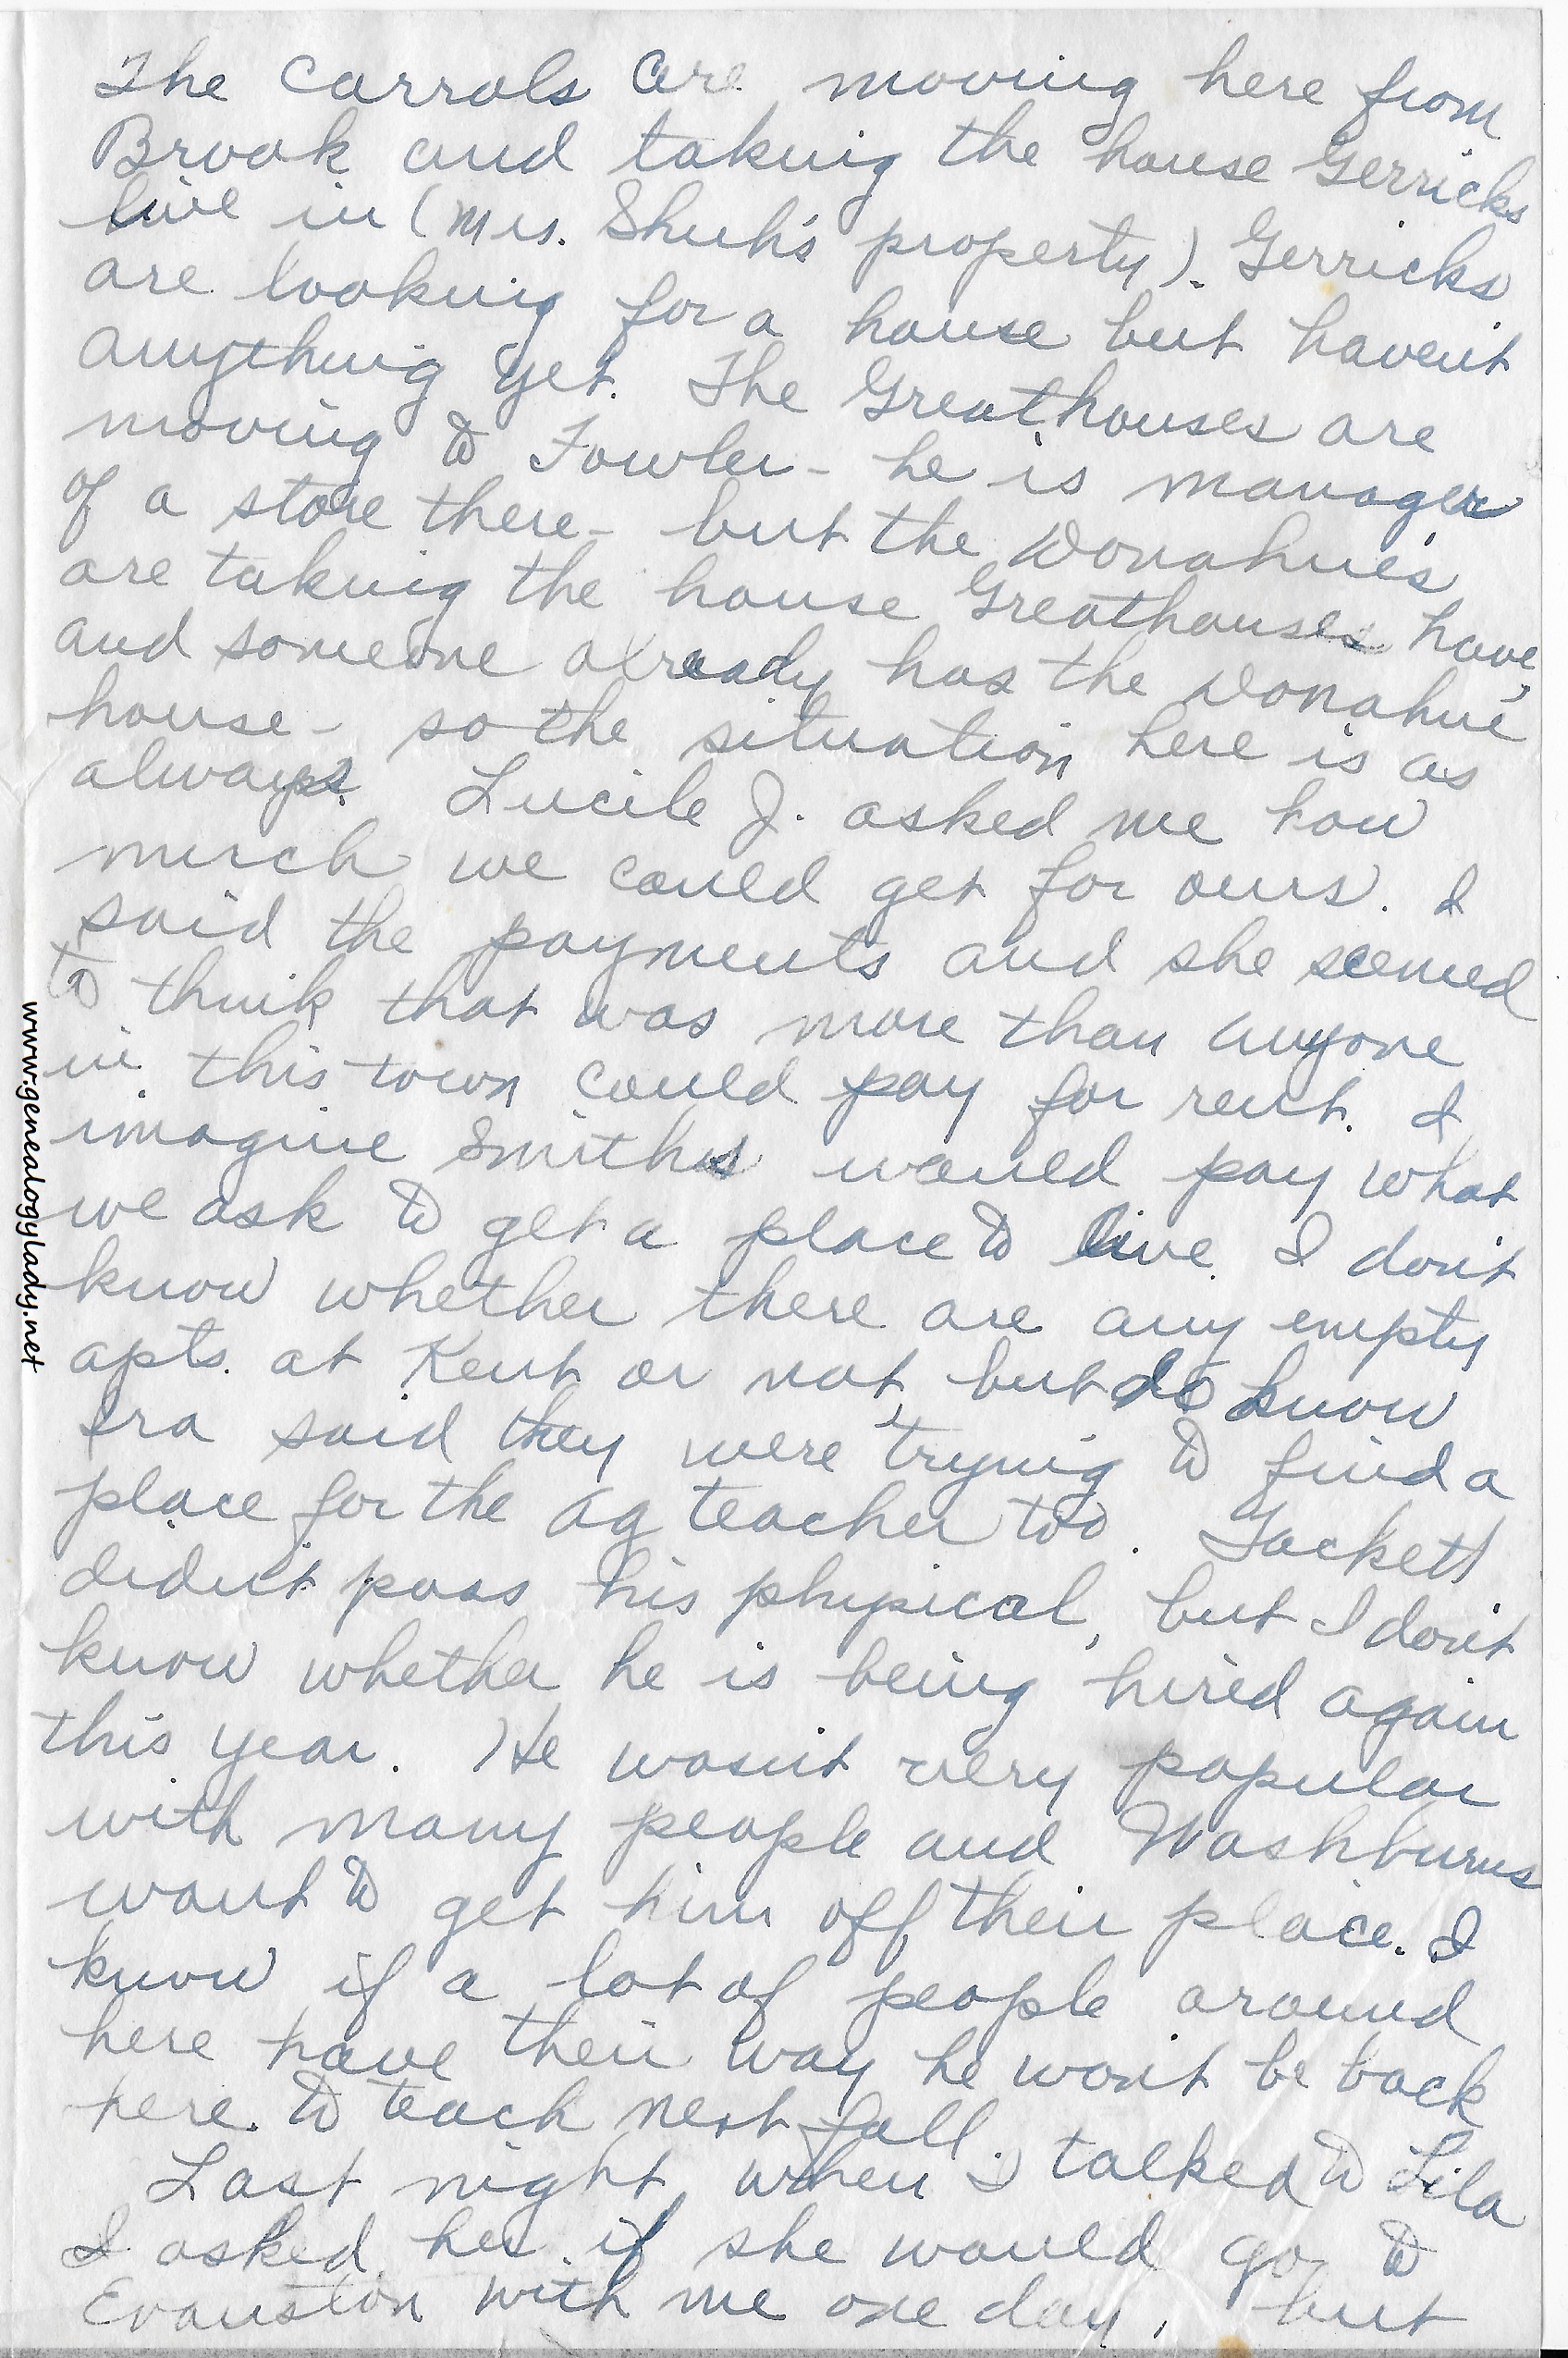 The Carrols are moving here from
Brook and taking the house Gerricks
live in (Mrs. Shuh's property). Gerricks
are looking for a house but haven't
anything yet. The Greathouses are
moving to Fowler - he is manager
of a store there - but the Donahue's
are taking the house Greathouses have,
and someone already has the Donahue
house - so the situation here is as
always. Lucile J. asked me how
much we could get for ours. I
said the payments and she seemed
to think that was more than anyone
in this town could pay for rent. I
imagine Smiths would pay what
we ask to get a place to live. I don't
know whether there are any empty
apts. at Kent or not, but do know
Ira said they were trying to find a
place for the ag teacher too. Gackett
didn't pass his physical, but I don't
know whether he is being hired again
this year. He wasn't very popular
with many people and Washburns
want to get him off their place. I
know if a lot of people around
here have their way he won't be back
here to teach next fall.
Last night when I talked to Lila
I asked her if she would go to
Evanston with me one day, but
www.genealogylady.net